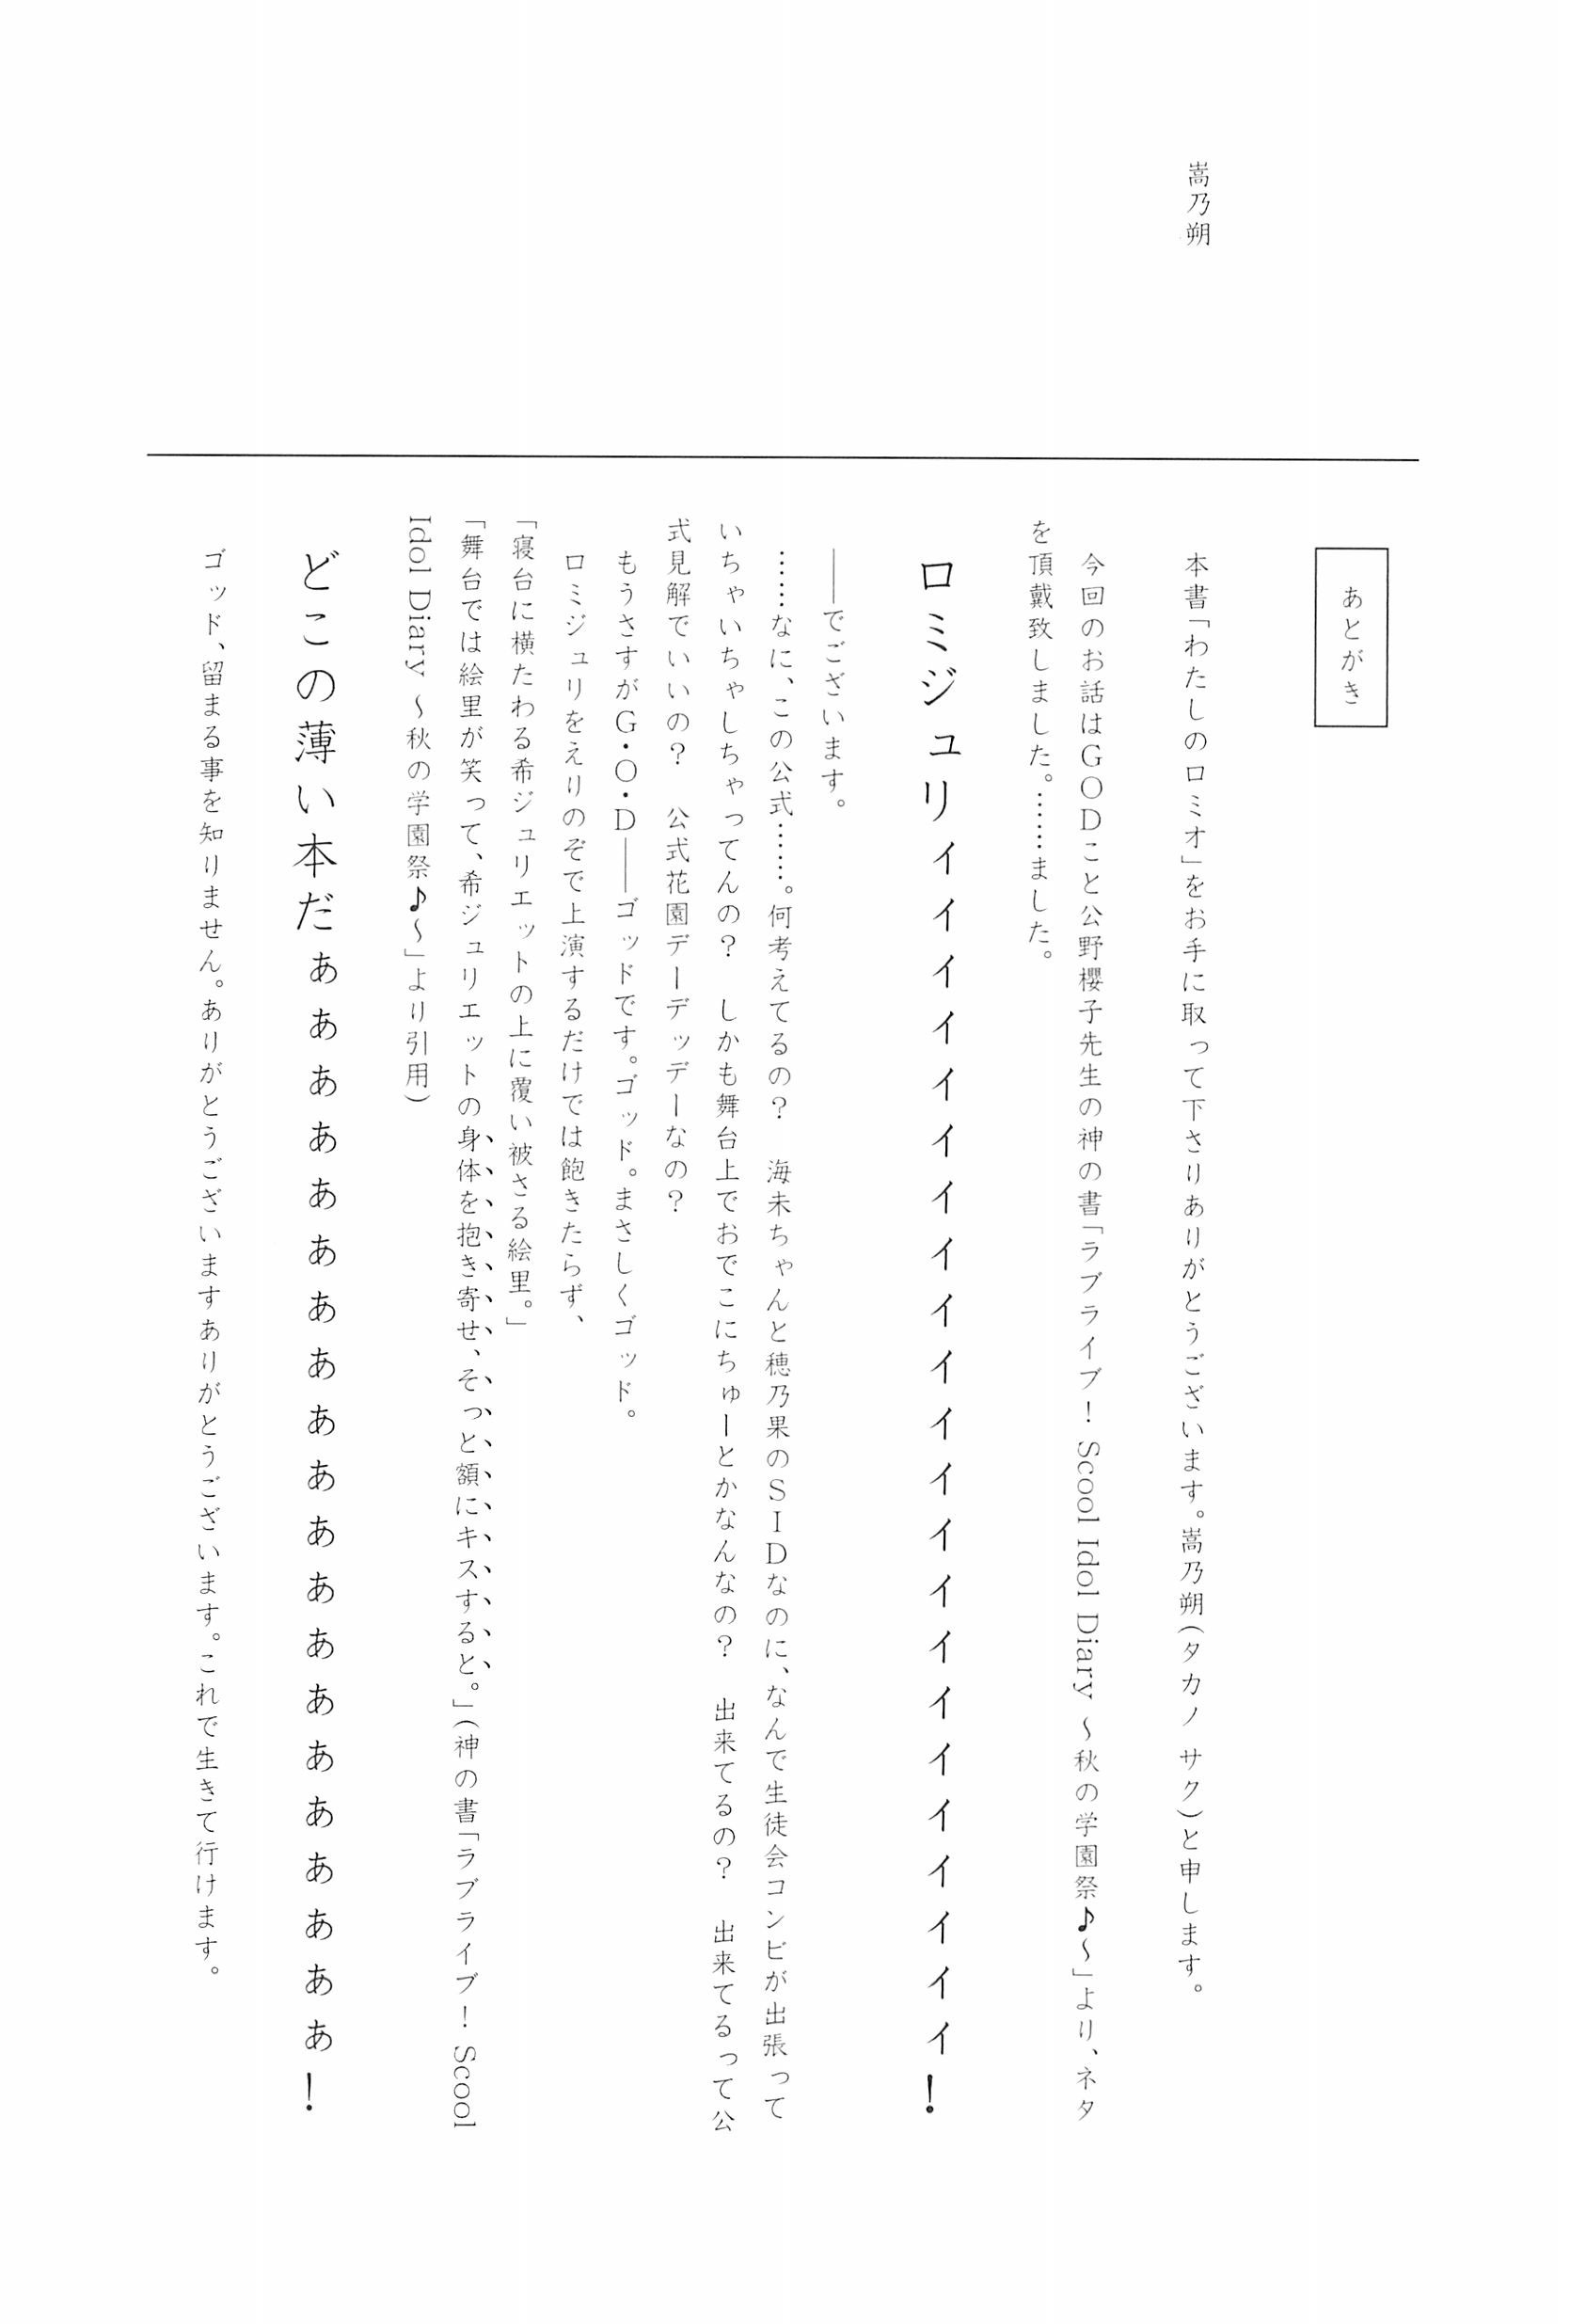 あとがき
嵩乃朔
本書「わたしのロミオ」をお手に取って下さりありがとうございます。嵩乃朔(タカノ サク)と申します。
今回のお話はGODこと公野櫻子先生の神の書「ラブライブ! Scool Idol Diary ~秋の学園祭♪~」より、ネタ
を頂戴致しました。……ました。
ロミジュリィィィィィィィィィィィィィィィィィィィィィィ!
――でございます。
……なに、この公式……。何考えてるの? 海未ちゃんと穂乃果のSIDなのに、なんで生徒会コンビが出張って
いちゃいちゃしちゃってんの? しかも舞台上でおでこにちゅーとかなんなの? 出来てるの? 出来てるって公
式見解でいいの? 公式花園デーデッデーなの?
もうさすがG・O・D――ゴッドです。ゴッド。まさしくゴッド。
ロミジュリをえりのぞで上演するだけでは飽きたらず、
「寝台に横たわる希ジュリエットの上に覆い被さる絵里。」
「舞台では絵里が笑って、希ジュリエットの身体を抱き寄せ、そっと額にキスすると。」(神の書「ラブライブ! Scool
Idol Diary ~秋の学園祭♪~」より引用)
どこの薄い本だぁぁぁぁぁぁぁぁぁぁぁぁぁぁぁぁぁぁぁぁ!
ゴッド、留まる事を知りません。ありがとうございますありがとうございます。これで生きて行けます。